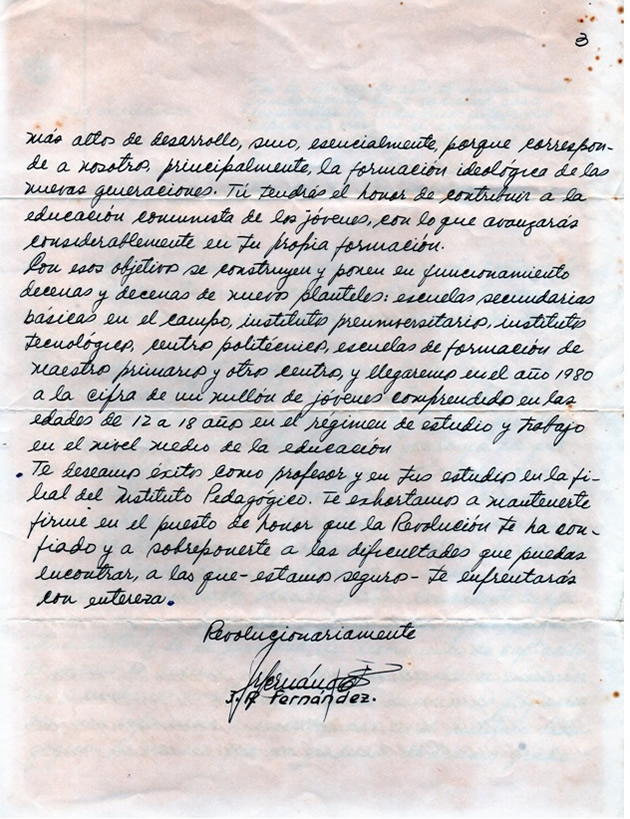 3
más altos de desarrollo, sino, esencialmente, porque correspon-
de a nosotros, principalmente, la formación ideológica de las
nuevas generaciones. Tú tendrás el honor de contribuir a la
educación comunista de los jóvenes, con lo que avanzarás
considerablemente en tu propia formación.
Con esos objetivos se construyen y ponen en funcionamiento
decenas y decenas de nuevos planteles: escuelas secundarias
básicas en el campo, institutos preuniversitarios, institutos
tecnológicos, centros politécnicos, escuelas de formación de
maestros primarios y otros centros, y llegaremos en el año 1980
a la cifra de un millón de jóvenes comprendidos en las
edades de 12 a 18 años en el régimen de estudio y trabajo
en el nivel medio de la educación
Te deseamos éxitos como profesor y en tus estudios en la fi-
lial del Instituto Pedagógico. Te exhortamos a mantenerte
firme en el puesto de honor que la Revolución te ha con-
fiado y a sobreponerte a las dificultades que puedas
encontrar, a las que - estamos seguros - te enfrentarás
con entereza.
Revolucionariamente
J R Fernández
J. R. Fernández.